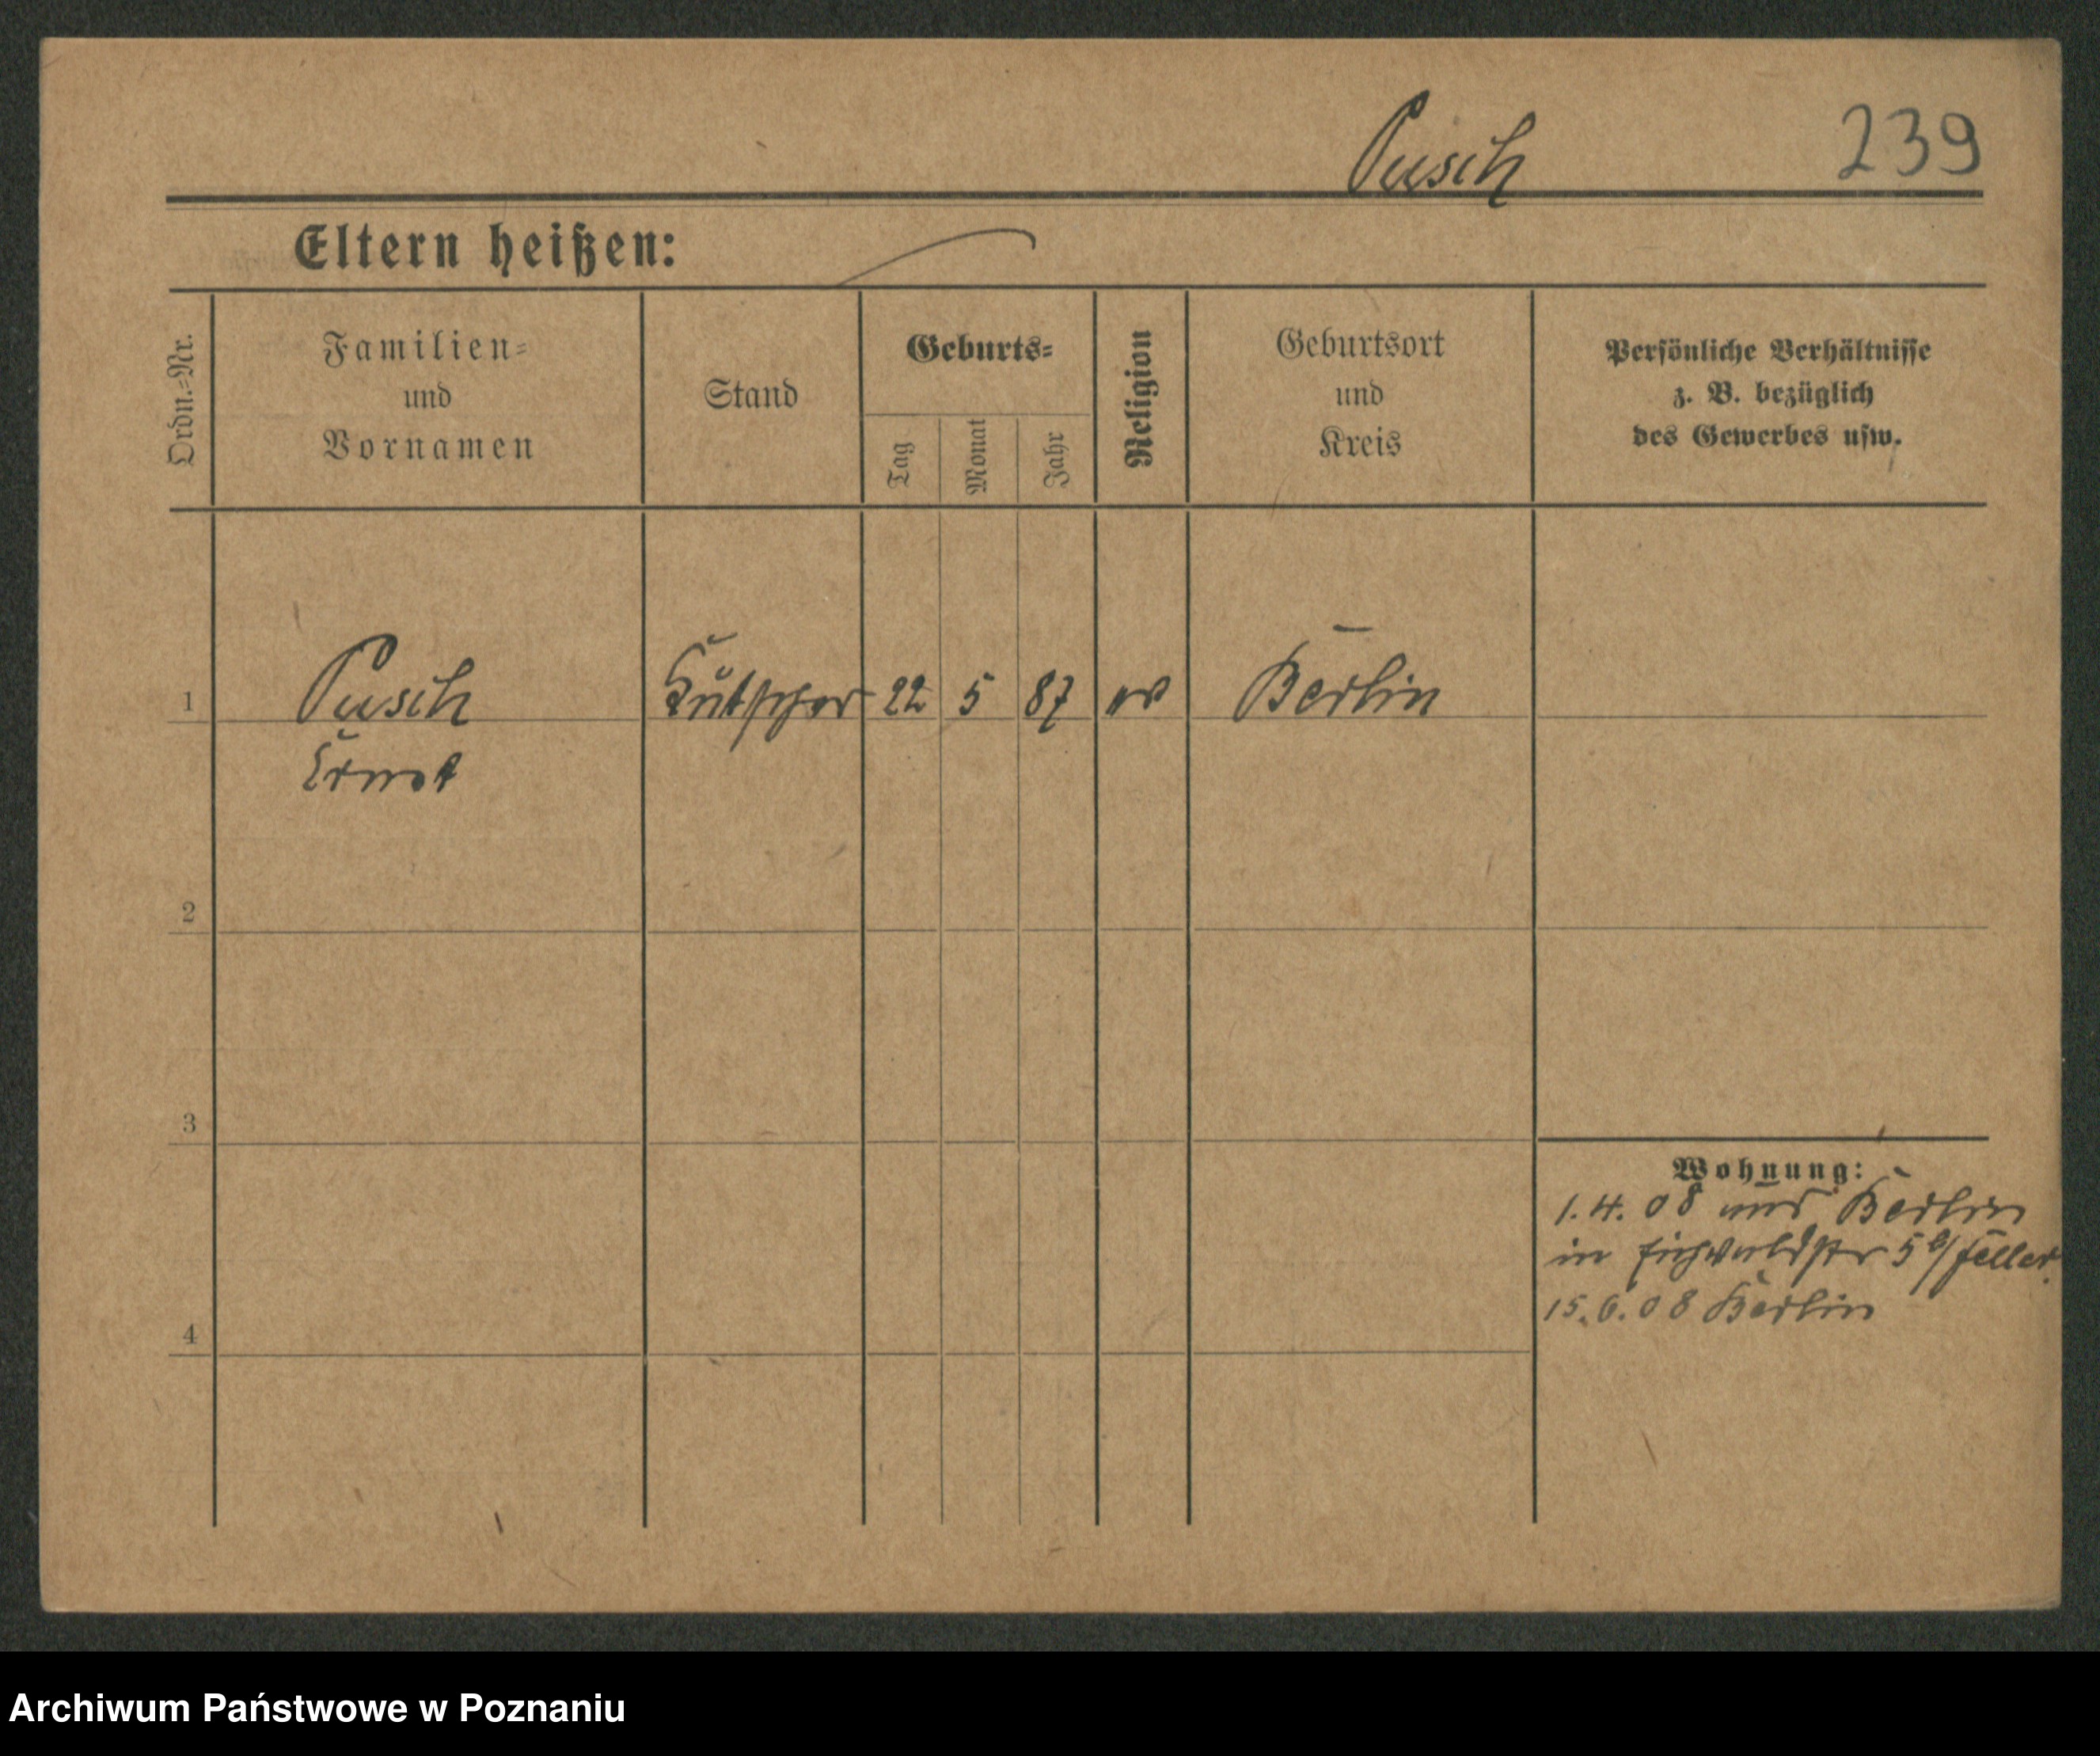 Pusch 239
Eltern heißen:
Ordn.=Nr.
Familien=
und
Vornamen
Stand
Geburts=
Tag
Monat
Jahr
Religion
Geburtsort
und
Kreis
Persönliche Verhältnisse
z. B. bezüglich
des Gewerbes usw.
1 Pusch Kutscher 22 5 87 ev Berlin
Ernst
2
3
Wohnung:
1. 4. 08 aus Berlin
in Eichwaldstr 5 b/ Feller.
15. 6. 08 Berlin
4
Archiwum Państwowe w Poznaniu